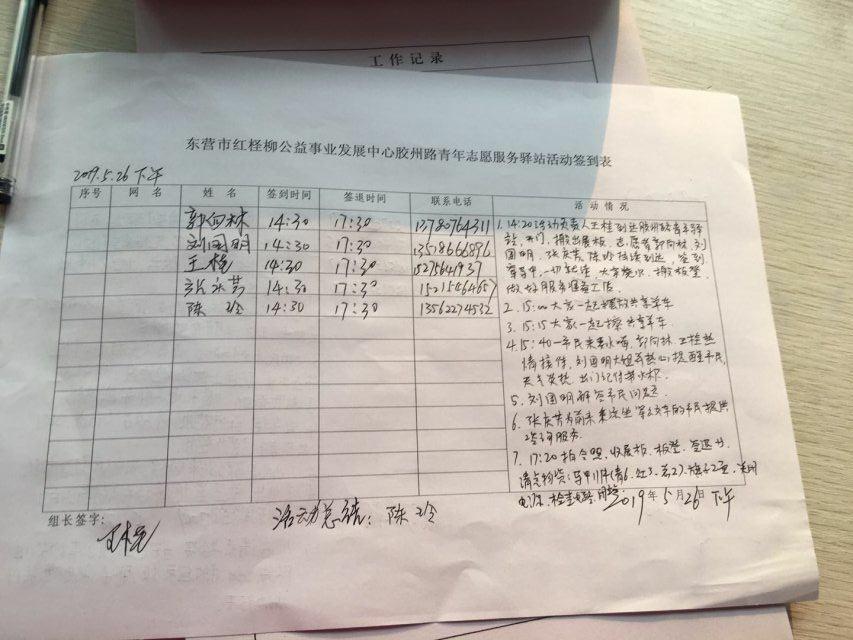 工作记录
东营市红柽柳公益事业发展中心胶州路青年志愿服务驿站活动签到表
2019.5.26下午
序号 网名 姓名 签到时间 签退时间 联系电话 活动情况
郭向林 14:30 17:30 13780764311
刘国明 14:30 17:30 13518666876
王桂 14:30 17:30 15275641937
张永芳 14:30 17:30 15215464657
陈玲 14:30 17:30 13562274532
1. 14:20活动负责人王桂到达胶州路青年驿
站,开门,搬出展板,志愿者郭向林,刘
国明,张永芳,陈玲陆续到达,签到
穿马甲,一切就绪,大家烧水,搬板凳
做好服务准备工作
2. 15:00大家一起摆放共享单车
3. 15:15大家一起擦共享单车
4. 15:40一市民来喝水,郭向林,王桂热
情接待,刘国明大姐热心提醒市民,
天气炎热,出门记得带水杯
5. 刘国明解答市民问
6. 张永芳为前来乘凉坐等公交车的市民提供
服务.
7. 17:20拍合照,收展板,板凳,签退
清点物资:马甲11件(青6,红3,蓝2),旗子2面,关闭
电源,检查
2019年5月26日下午
组长签字:
王桂
活动总结:陈玲